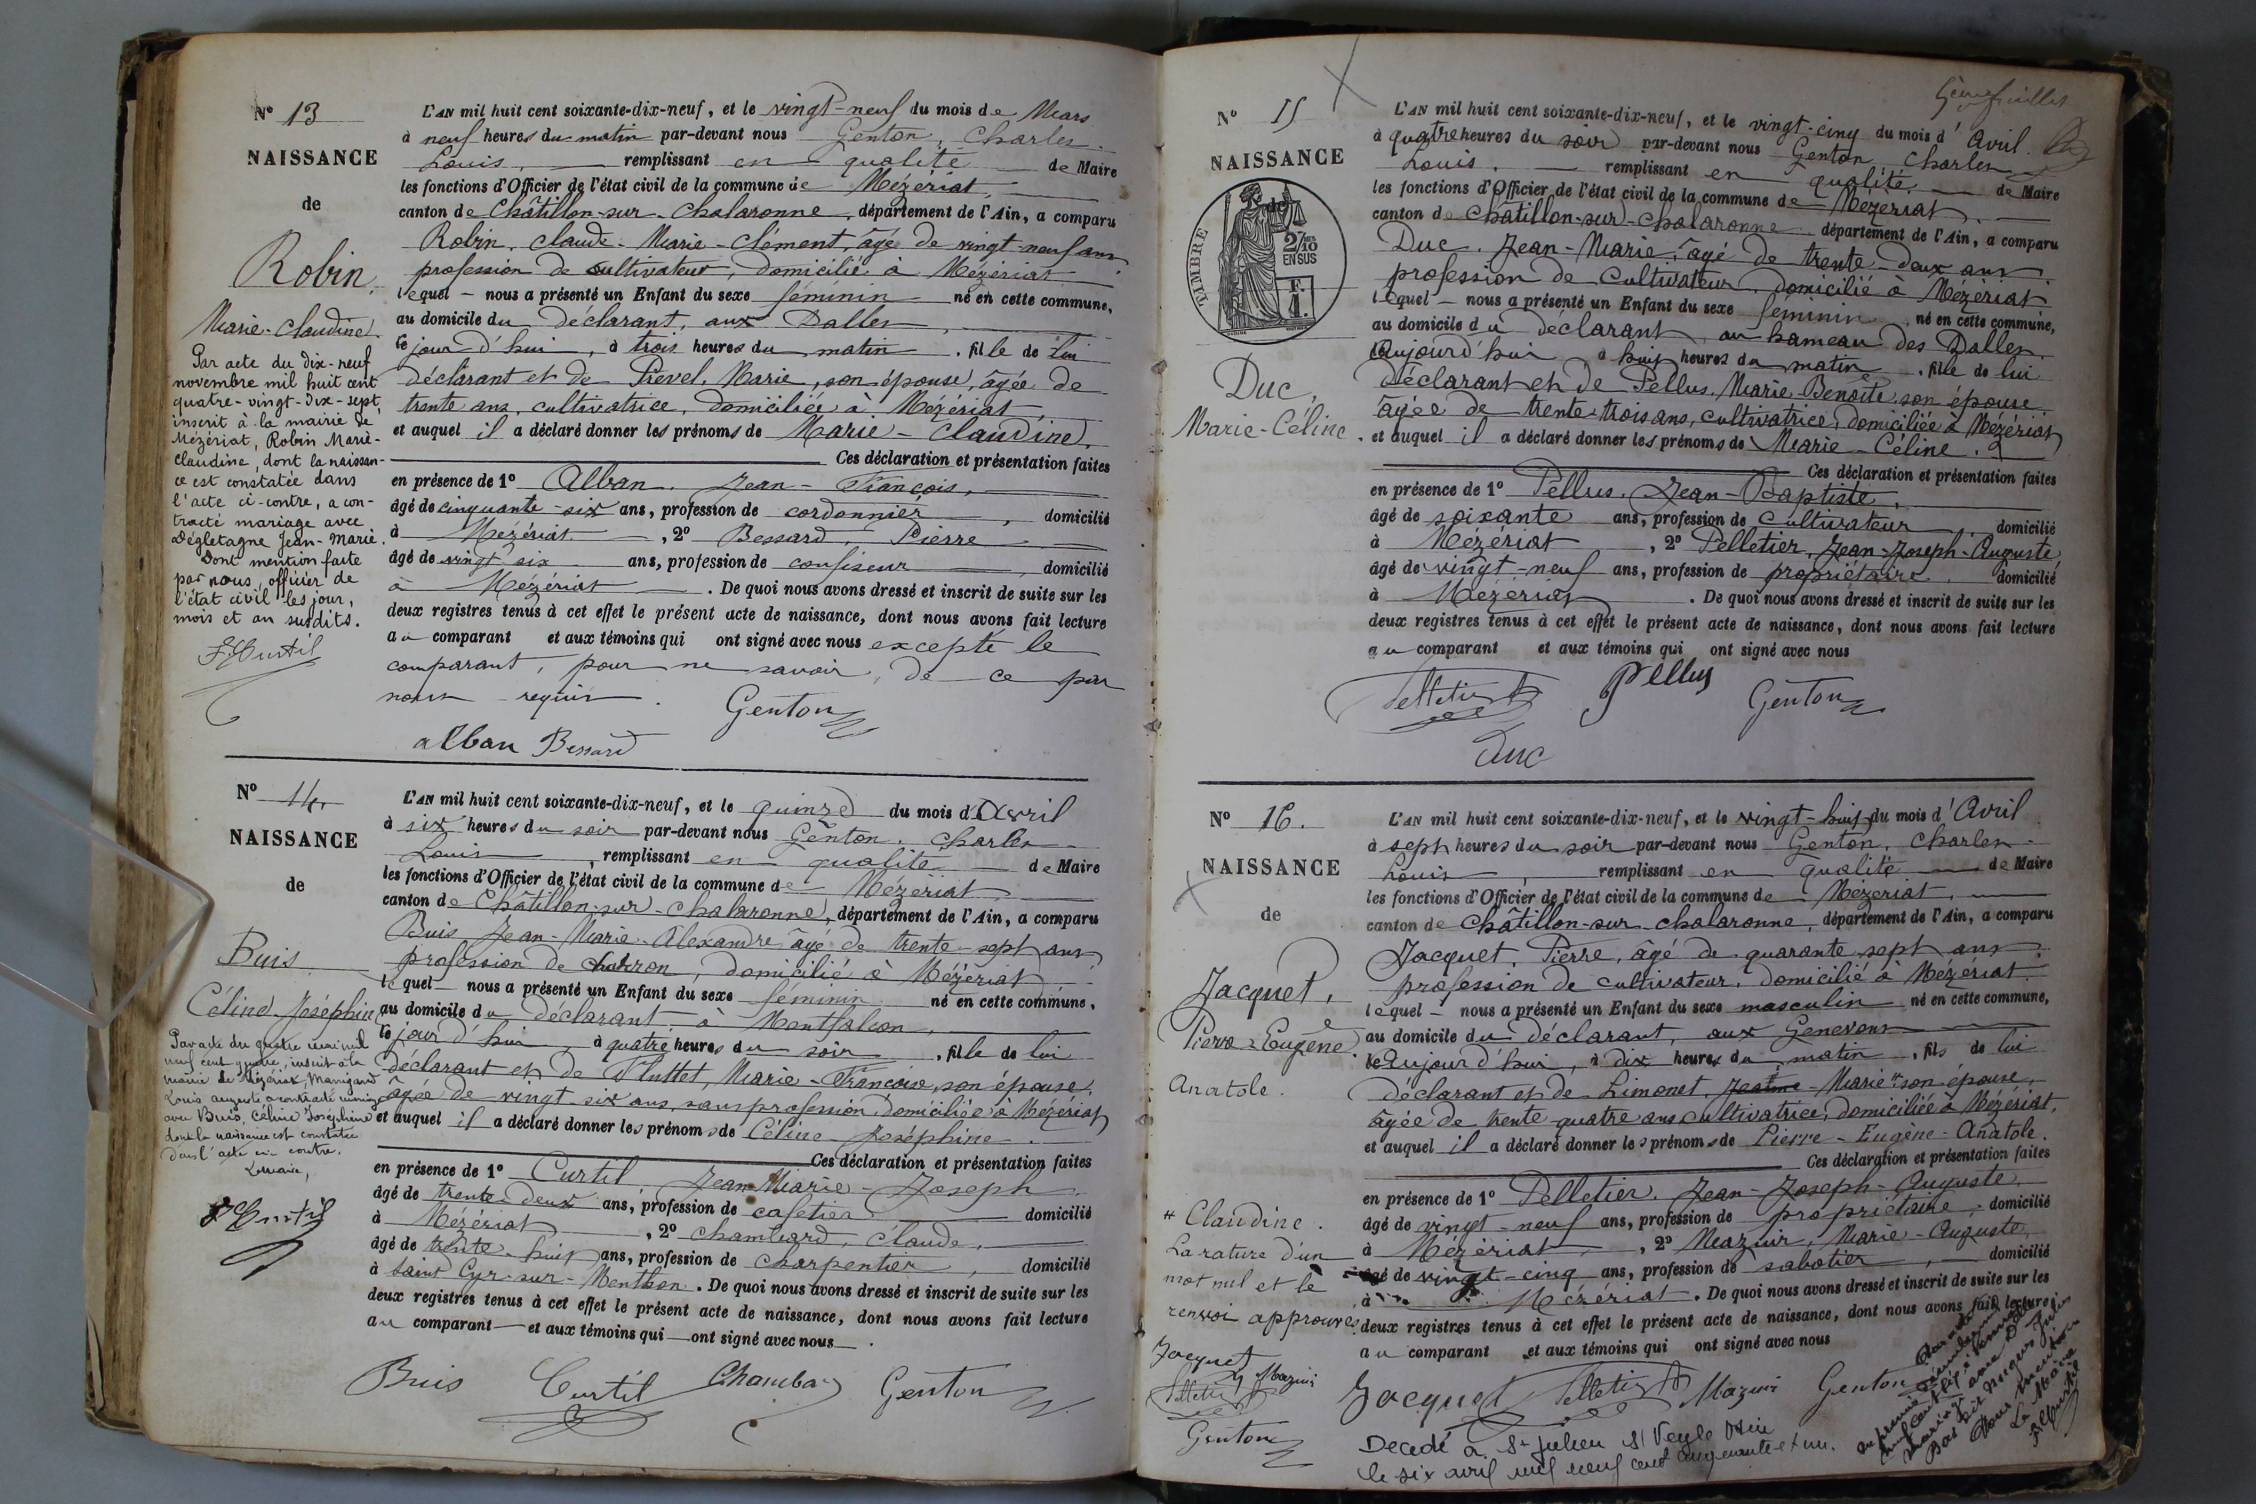 N° 13
NAISSANCE
de
Robin,
Marie-Claudine.
Par acte du dix-neuf
novembre mil huit cent
quatre-vingt-dix-sept,
inscrit à la mairie de
Mézériat, Robin Marie-
Claudine, dont la naissan-
ce est constatée dans
l'acte ci-contre, a con-
tracté mariage avec
Dégletagne Jean-Marie.
Dont mention faite
par nous, officier de
l'état civil les jour,
mois et an susdits.
F. Curtil
L'AN mil huit cent soixante-dix-neuf, et le vingt-neuf du mois de Mars
à neuf heures du matin par-devant nous Genton, Charles
Louis, remplissant en qualité de Maire
les fonctions d'Officier de l'état civil de la commune de Mézériat,
canton de Châtillon-sur-Chalaronne, département de l'Ain, a comparu
Robin, Claude-Marie-Clément, âgé de vingt-neuf ans,
profession de cultivateur, domicilié à Mézériat
lequel nous a présenté un Enfant du sexe féminin né en cette commune,
au domicile du déclarant, aux Dalles,
ce jour d'hui, à trois heures du matin, fille de lui
déclarant et de Prevel, Marie, son épouse, âgée de
trente ans, cultivatrice, domiciliée à Mézériat,
et auquel il a déclaré donner les prénoms de Marie-Claudine,
Ces déclaration et présentation faites
en présence de 1° Alban, Jean-François,
âgé de cinquante-six ans, profession de cordonnier, domicilié
à Mézériat, 2° Bessard, Pierre
âgé de vingt six ans, profession de confiseur, domicilié
à Mézériat. De quoi nous avons dressé et inscrit de suite sur les
deux registres tenus à cet effet le présent acte de naissance, dont nous avons fait lecture
au comparant et aux témoins qui ont signé avec nous excepté le
comparant, pour ne savoir, de ce par
nous requis.
Genton
alban Bessard
N° 14
NAISSANCE
de
Buis
Céline-Joséphine
Par acte du quatre mai mil
neuf cent quatre, inscrit à la
mairie de Mézériat, Manigand
Louis, auguste a contracté mariage
avec Buis, Céline Joséphine
dont la naissance est constatée
dans l'acte ci-contre.
Le maire,
F. Curtil
L'AN mil huit cent soixante-dix-neuf, et le quinze du mois d'Avril
à six heures du soir par-devant nous Genton, Charles
Louis, remplissant en qualité de Maire
les fonctions d'Officier de l'état civil de la commune de Mézériat
canton de Châtillon-sur-Chalaronne, département de l'Ain, a comparu
Buis Jean-Marie-Alexandre âgé de trente-sept ans
profession de charron, domicilié à Mézériat
lequel nous a présenté un Enfant du sexe féminin né en cette commune,
au domicile du déclarant à Montfalcon,
ce jour d'hui, à quatre heures du soir, fille de lui
déclarant et de Pluttet, Marie-Françoise, son épouse,
âgée de vingt six ans, sans profession, domiciliée à Mézériat
et auquel il a déclaré donner les prénoms de Céline-Joséphine
Ces déclaration et présentation faites
en présence de 1° Curtil, Jean-Marie-Joseph,
âgé de trente-deux ans, profession de cafetier domicilié
à Mézériat, 2° Chambard, Claude,
âgé de trente-huit ans, profession de charpentier, domicilié
à Saint Cyr-sur-Menthon. De quoi nous avons dressé et inscrit de suite sur les
deux registres tenus à cet effet le présent acte de naissance, dont nous avons fait lecture
au comparant et aux témoins qui ont signé avec nous.
Buis Curtil Chambard Genton
N° 15
NAISSANCE
de
TIMBRE
2/10 EN SUS
F. 1.
Duc,
Marie-Céline.
L'AN mil huit cent soixante-dix-neuf, et le vingt-cinq du mois d'Avril
à quatre heures du soir par-devant nous Genton, Charles
Louis, remplissant en qualité de Maire
les fonctions d'Officier de l'état civil de la commune de Mézériat,
canton de Châtillon-sur-Chalaronne, département de l'Ain, a comparu
Duc, Jean-Marie, âgé de trente-deux ans
profession de cultivateur, domicilié à Mézériat
lequel nous a présenté un Enfant du sexe féminin né en cette commune,
au domicile du déclarant, au hameau des Dalles,
aujourd'hui à huit heures du matin, fille de lui
déclarant et de Pellus, Marie, Benoîte, son épouse,
âgée de trente-trois ans, cultivatrice, domiciliée à Mézériat
et auquel il a déclaré donner les prénoms de Marie-Céline.
Ces déclaration et présentation faites
en présence de 1° Pellus, Jean-Baptiste,
âgé de soixante ans, profession de cultivateur, domicilié
à Mézériat, 2° Pelletier, Jean-Joseph-Auguste,
âgé de vingt-neuf ans, profession de propriétaire, domicilié
à Mézériat. De quoi nous avons dressé et inscrit de suite sur les
deux registres tenus à cet effet le présent acte de naissance, dont nous avons fait lecture
au comparant et aux témoins qui ont signé avec nous
Pelletier Pellus Genton
Duc
N° 16.
NAISSANCE
de
Jacquet,
Pierre-Eugène
Anatole.
# Claudine.
La rature d'un
mot nul et le
renvoi approuvés.
Jacquet
Pelletier Mazuir
Genton
L'AN mil huit cent soixante-dix-neuf, et le vingt-huit du mois d'Avril
à sept heures du soir par-devant nous Genton, Charles
Louis, remplissant en qualité de Maire
les fonctions d'Officier de l'état civil de la commune de Mézériat,
canton de Châtillon-sur-Chalaronne, département de l'Ain, a comparu
Jacquet, Pierre, âgé de quarante sept ans
profession de cultivateur, domicilié à Mézériat
lequel nous a présenté un Enfant du sexe masculin né en cette commune,
au domicile du déclarant, aux Genevons
aujourd'hui, à dix heures du matin, fils de lui
déclarant et de Limonet, Marie # son épouse,
âgée de trente quatre ans cultivatrice, domiciliée à Mézériat,
et auquel il a déclaré donner les prénoms de Pierre-Eugène-Anatole.
Ces déclaration et présentation faites
en présence de 1° Pelletier, Jean-Joseph-Auguste,
âgé de vingt-neuf ans, profession de propriétaire, domicilié
à Mézériat, 2° Mazuir, Marie-Auguste,
âgé de vingt-cinq ans, profession de sabotier, domicilié
à Mézériat. De quoi nous avons dressé et inscrit de suite sur les
deux registres tenus à cet effet le présent acte de naissance, dont nous avons fait lecture
au comparant et aux témoins qui ont signé avec nous
Jacquet Pelletier Mazuir Genton
Decédé à St Julien S/ Veyle Ain
le six avril mil neuf cent cinquante et un.
Le Maire
F. Curtil